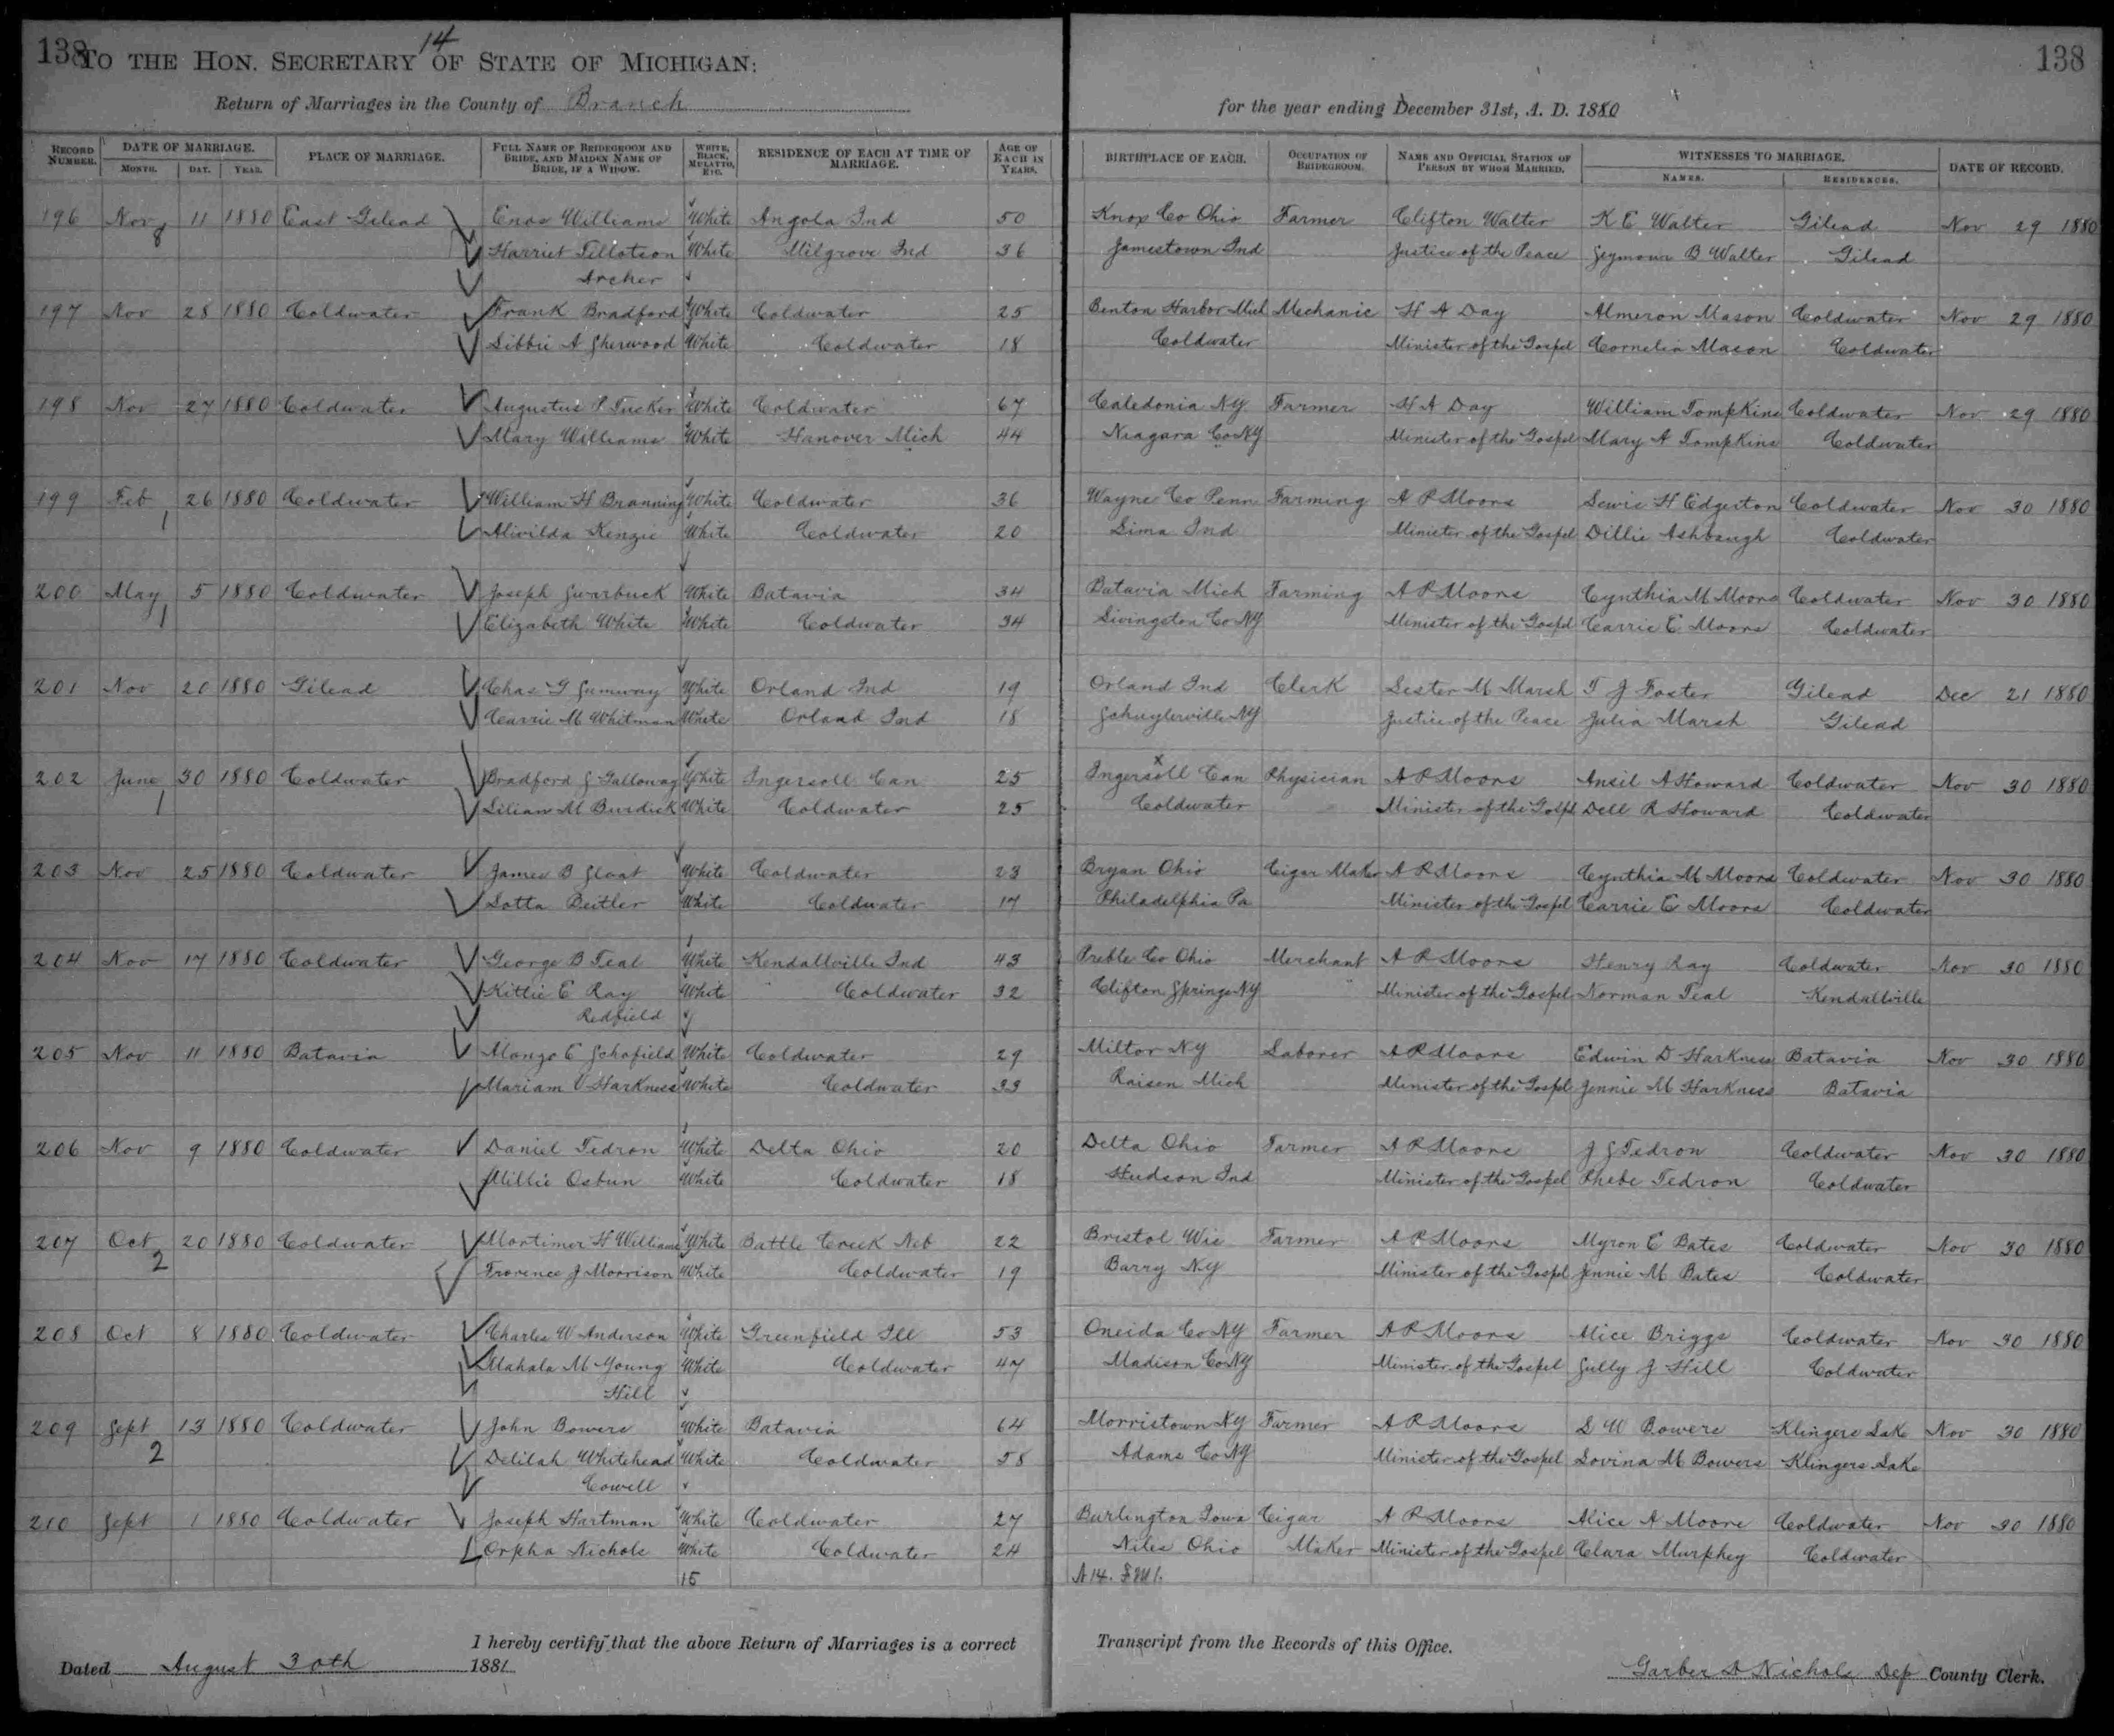 138 14 138
TO THE HON. SECRETARY OF STATE OF MICHIGAN:
Return of Marriages in the County of Branch for the year ending December 31st, A. D. 1880
RECORD NUMBER. DATE OF MARRIAGE. MONTH. DAY. YEAR. PLACE OF MARRIAGE. FULL NAME OF BRIDEGROOM AND BRIDE, AND MAIDEN NAME OF BRIDE, IF A WIDOW. WHITE, BLACK, MULATTO, ETC. RESIDENCE OF EACH AT TIME OF MARRIAGE. AGE OF EACH IN YEARS. BIRTHPLACE OF EACH. OCCUPATION OF BRIDEGROOM. NAME AND OFFICIAL STATION OF PERSON BY WHOM MARRIED. WITNESSES TO MARRIAGE. NAMES. RESIDENCES. DATE OF RECORD.
196 Nov 11 1880 East Gilead Enos Williams White Angola Ind 50 Knox Co Ohio Farmer Clifton Walter K E Walter Gilead Nov 29 1880
8 Harriet Tillotson White Milgrove Ind 36 Jamestown Ind Justice of the Peace Seymour B Walter Gilead
Archer
197 Nov 28 1880 Coldwater Frank Bradford White Coldwater 25 Benton Harbor Mich Mechanic H A Day Almeron Mason Coldwater Nov 29 1880
Libbie A Sherwood White Coldwater 18 Coldwater Minister of the Gospel Cornelia Mason Coldwater
198 Nov 27 1880 Coldwater Augustus P Tucker White Coldwater 67 Caledonia NY Farmer H A Day William Tompkins Coldwater Nov 29 1880
Mary Williams White Hanover Mich 44 Niagara Co NY Minister of the Gospel Mary A Tompkins Coldwater
199 Feb 26 1880 Coldwater William H Branning White Coldwater 36 Wayne Co Penn Farming A P Moors Lewis H Edgerton Coldwater Nov 30 1880
1 Alivilda Kenzie White Coldwater 20 Lima Ind Minister of the Gospel Dillie Ashbaugh Coldwater
200 May 5 1880 Coldwater Joseph Swarbuck White Batavia 34 Batavia Mich Farming A P Moors Cynthia M Moors Coldwater Nov 30 1880
1 Elizabeth White White Coldwater 34 Livingston Co NY Minister of the Gospel Carrie E Moors Coldwater
201 Nov 20 1880 Gilead Chas G Jumway White Orland Ind 19 Orland Ind Clerk Lester M Marsh T J Foster Gilead Dec 21 1880
Carrie M Whitman White Orland Ind 18 Schuylerville NY Justice of the Peace Julia Marsh Gilead
202 June 30 1880 Coldwater Bradford J Galloway White Ingersoll Can 25 Ingersoll Can Physician A P Moors Ansil A Howard Coldwater Nov 30 1880
1 Lilian M Burdick White Coldwater 25 Coldwater Minister of the Gospl Dell R Howard Coldwater
203 Nov 25 1880 Coldwater James B Sloat White Coldwater 23 Bryan Ohio Cigar Maker A P Moors Cynthia M Moors Coldwater Nov 30 1880
Lotta Beitler White Coldwater 17 Philadelphia Pa Minister of the Gospel Carrie E Moors Coldwater
204 Nov 17 1880 Coldwater George B Teal White Kendallville Ind 43 Preble Co Ohio Merchant A P Moors Henry Ray Coldwater Nov 30 1880
Kittie E Ray White Coldwater 32 Clifton Springs NY Minister of the Gospel Norman Teal Kendallville
Redfield
205 Nov 11 1880 Batavia Alonzo E Schofield White Coldwater 29 Milton NY Laborer A P Moors Edwin D Harkness Batavia Nov 30 1880
Mariam V Harkness White Coldwater 33 Raisen Mich Minister of the Gospel Jennie M Harkness Batavia
206 Nov 9 1880 Coldwater Daniel Tedron White Delta Ohio 20 Delta Ohio Farmer A P Moors J S Tedron Coldwater Nov 30 1880
Millie Osbun White Coldwater 18 Hudson Ind Minister of the Gospel Phebe Tedron Coldwater
207 Oct 20 1880 Coldwater Mortimer H Williams White Battle Creek Neb 22 Bristol Wis Farmer A P Moors Myron E Bates Coldwater Nov 30 1880
2 Frorence J Morrison White Coldwater 19 Barry NY Minister of the Gospel Jennie M Bates Coldwater
208 Oct 8 1880 Coldwater Charles W Anderson White Greenfield Ill 53 Oneida Co NY Farmer A P Moors Alice Briggs Coldwater Nov 30 1880
Mahala M Young White Coldwater 47 Madison Co NY Minister of the Gospel Sully J Hill Coldwater
Hill
209 Sept 13 1880 Coldwater John Bowers White Batavia 64 Morristown NY Farmer A P Moors S W Bowers Klingers Lake Nov 30 1880
2 Delilah Whitehead White Coldwater 58 Adams Co NY Minister of the Gospel Lovina M Bowers Klingers Lake
Cowell
210 Sept 1 1880 Coldwater Joseph Hartman White Coldwater 27 Burlington Iowa Cigar A P Moors Alice A Moore Coldwater Nov 30 1880
Orpha Nichols White Coldwater 24 Niles Ohio Maker Minister of the Gospel Clara Murphey Coldwater
15 A 14.
I hereby certify that the above Return of Marriages is a correct Transcript from the Records of this Office.
Dated August 30th 1881 Garber D Nichols Dep County Clerk.